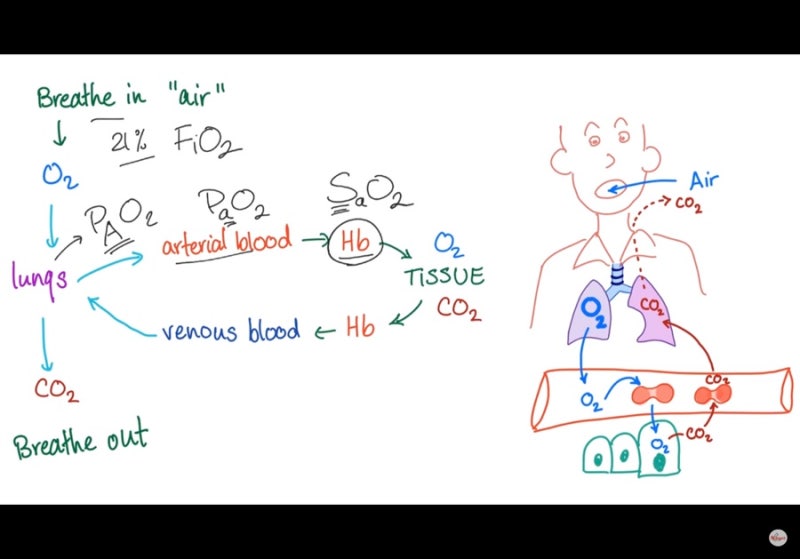 Breathe in "air"
21% FiO2
O2
PAO2
PaO2
SaO2
arterial blood → Hb
O2
TiSSUE
CO2
lungs
venous blood ← Hb
CO2
Breathe out
Air
CO2
O2
CO2
O2
CO2
O2
CO2